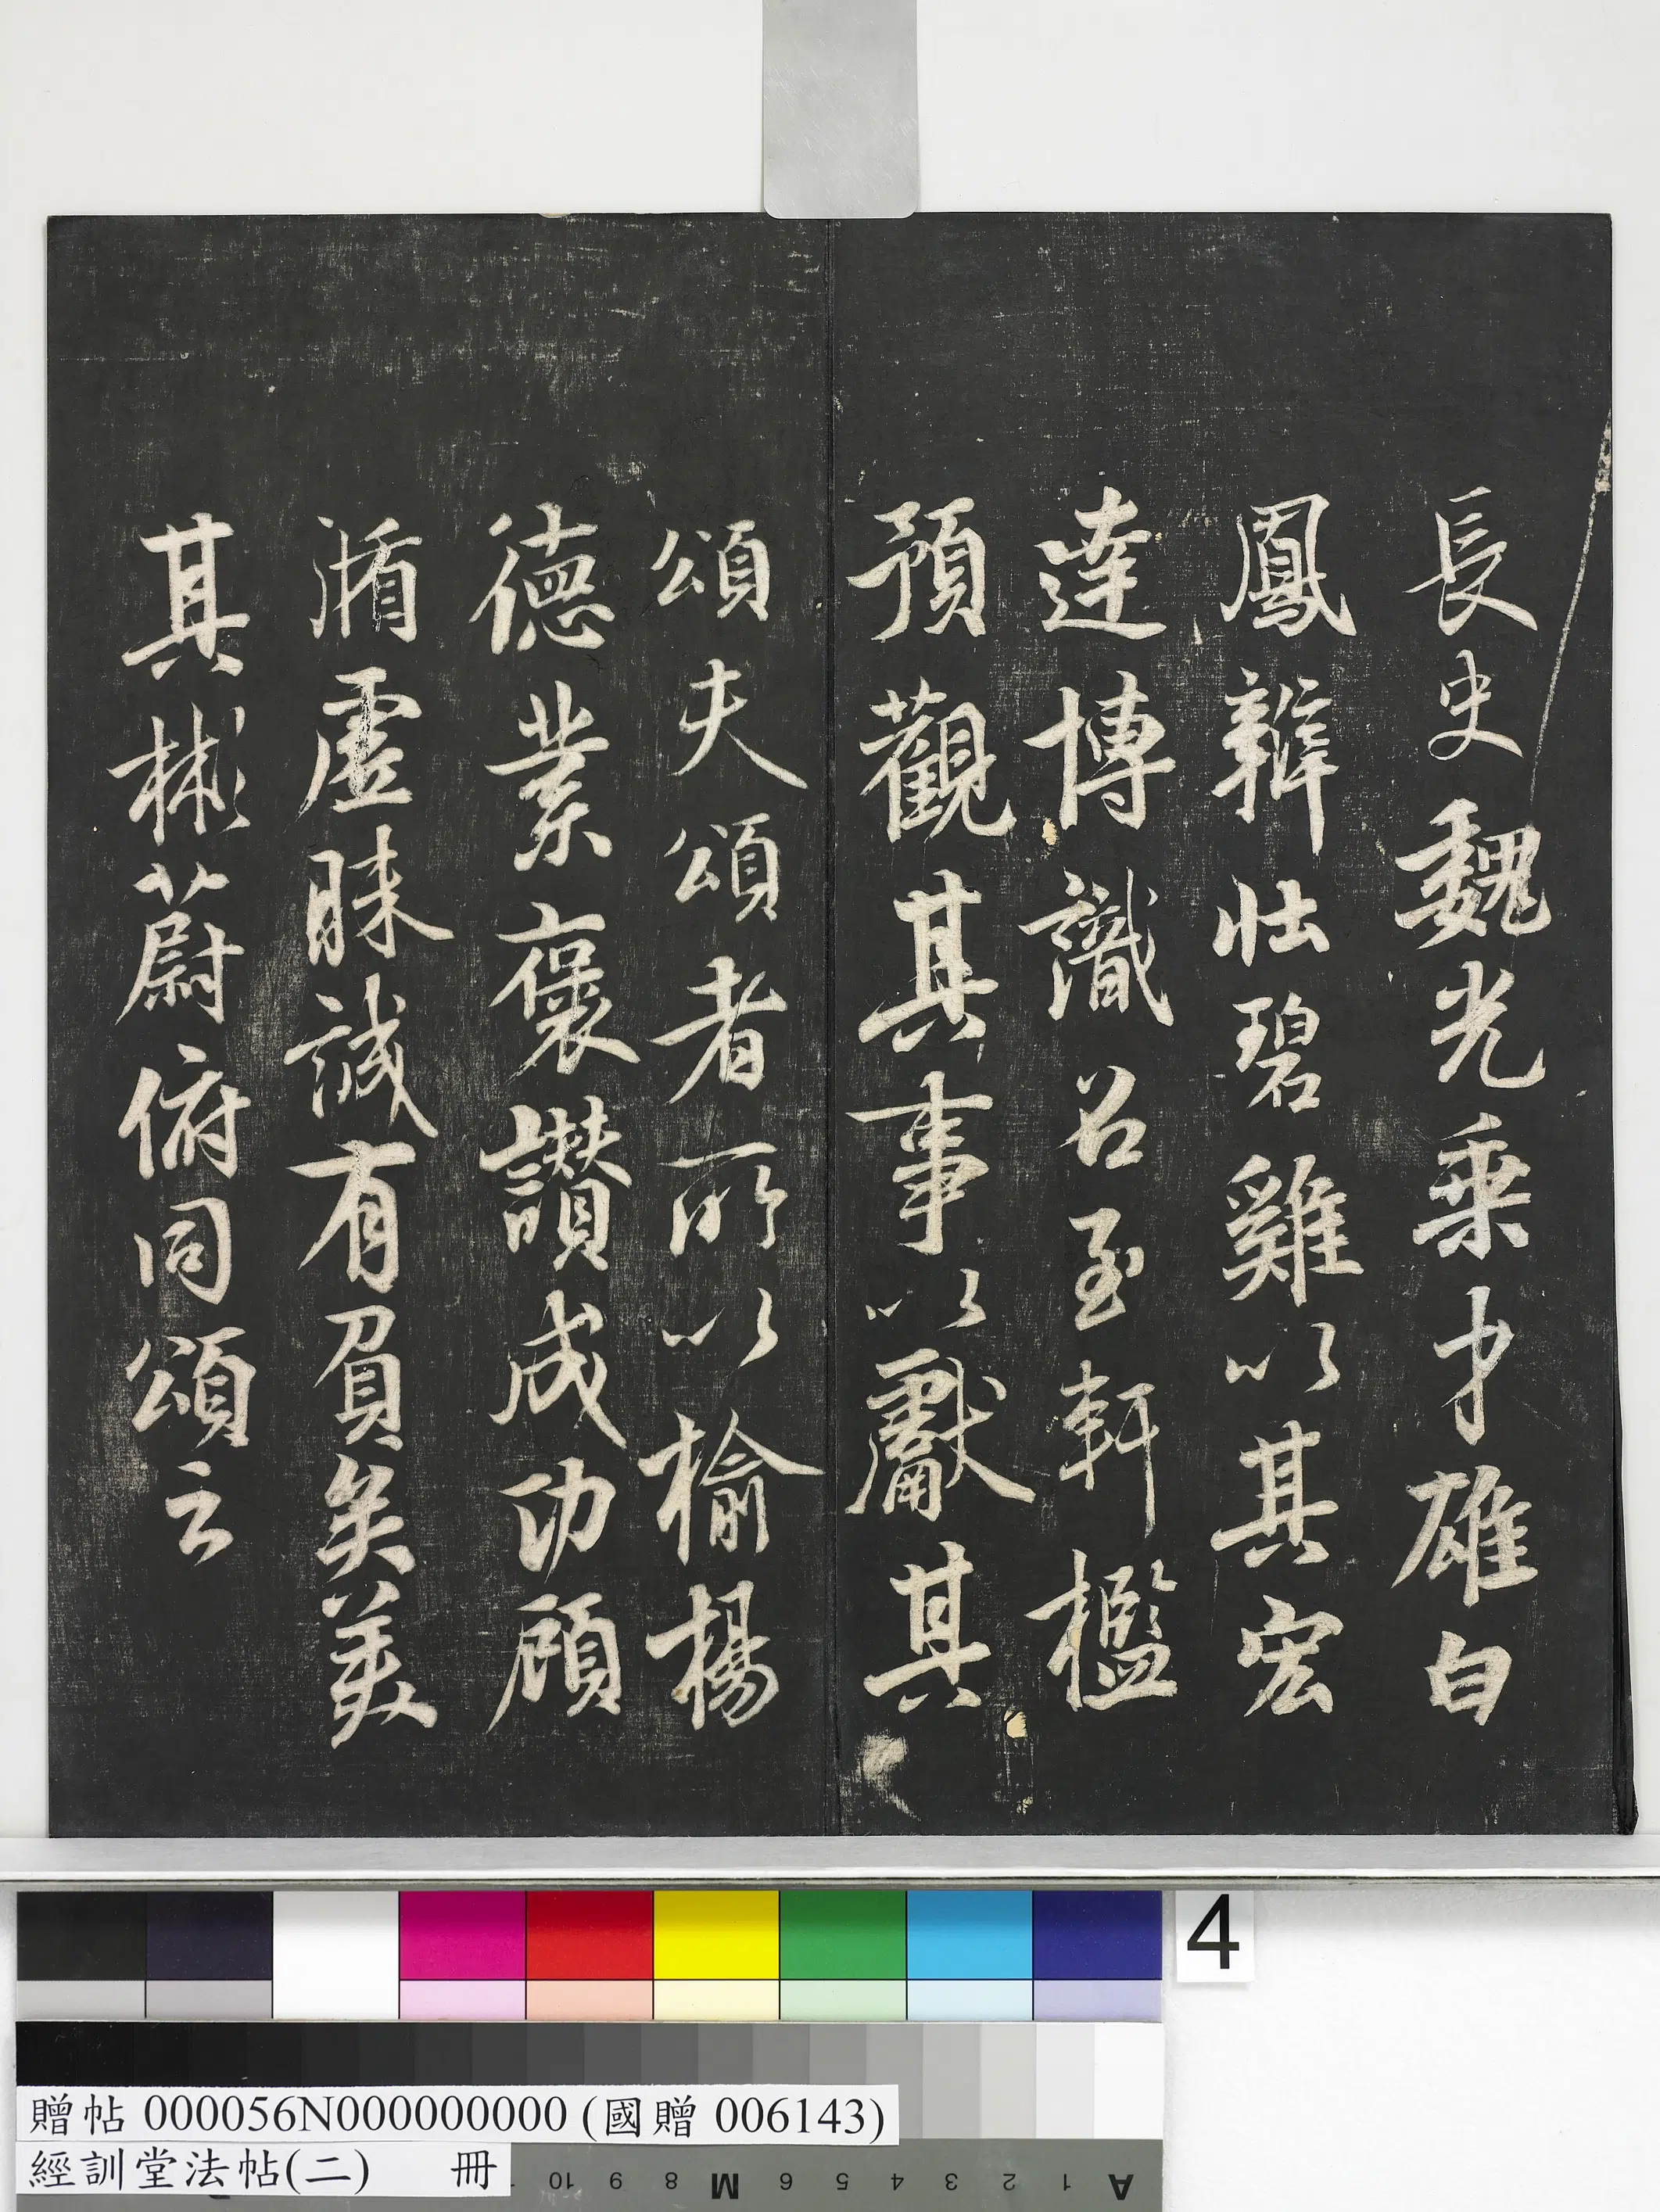 長史魏光乘才雄白
鳳辯壯碧雞以其宏
達博識召至軒檻
預觀其事以獻其
頌夫頌者所以揄揚
德業褒讚成功顧
循虛昧誠有負矣美
其彬蔚俯同頌云
4
贈帖 000056N000000000 (國贈 006143)
經訓堂法帖(二) 冊
10 9 8 M 6 5 4 3 2 1 A